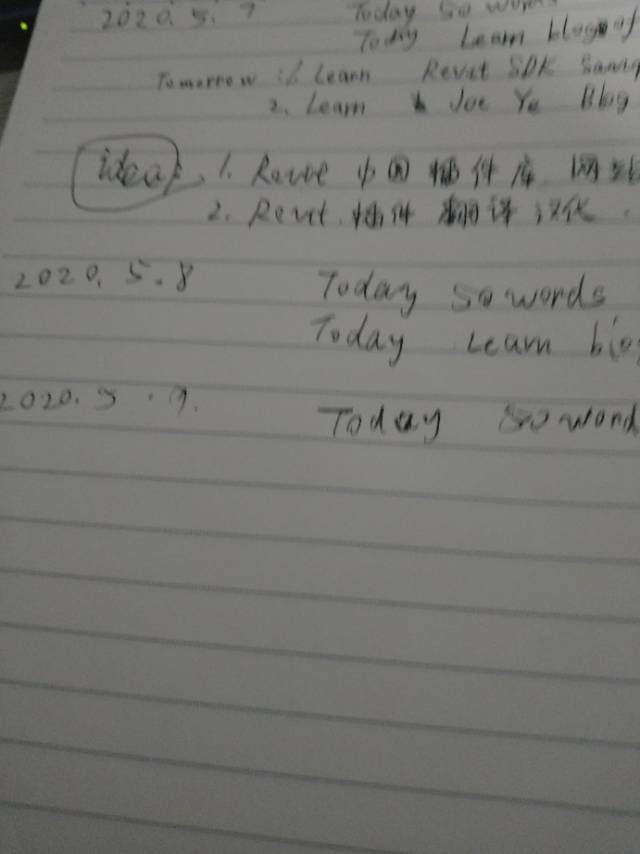 2020. 5. 7 Today 50 words
Today Learn blog of
Tomorrow : 1. Learn Revit SDK
2. Learn Joe Ye Blog
ideas 1. Revit 中国插件库 网站
2. Revit 插件 翻译汉化.
2020. 5. 8 Today 50 words
Today Learn blog
2020. 5. 9. Today 50 word